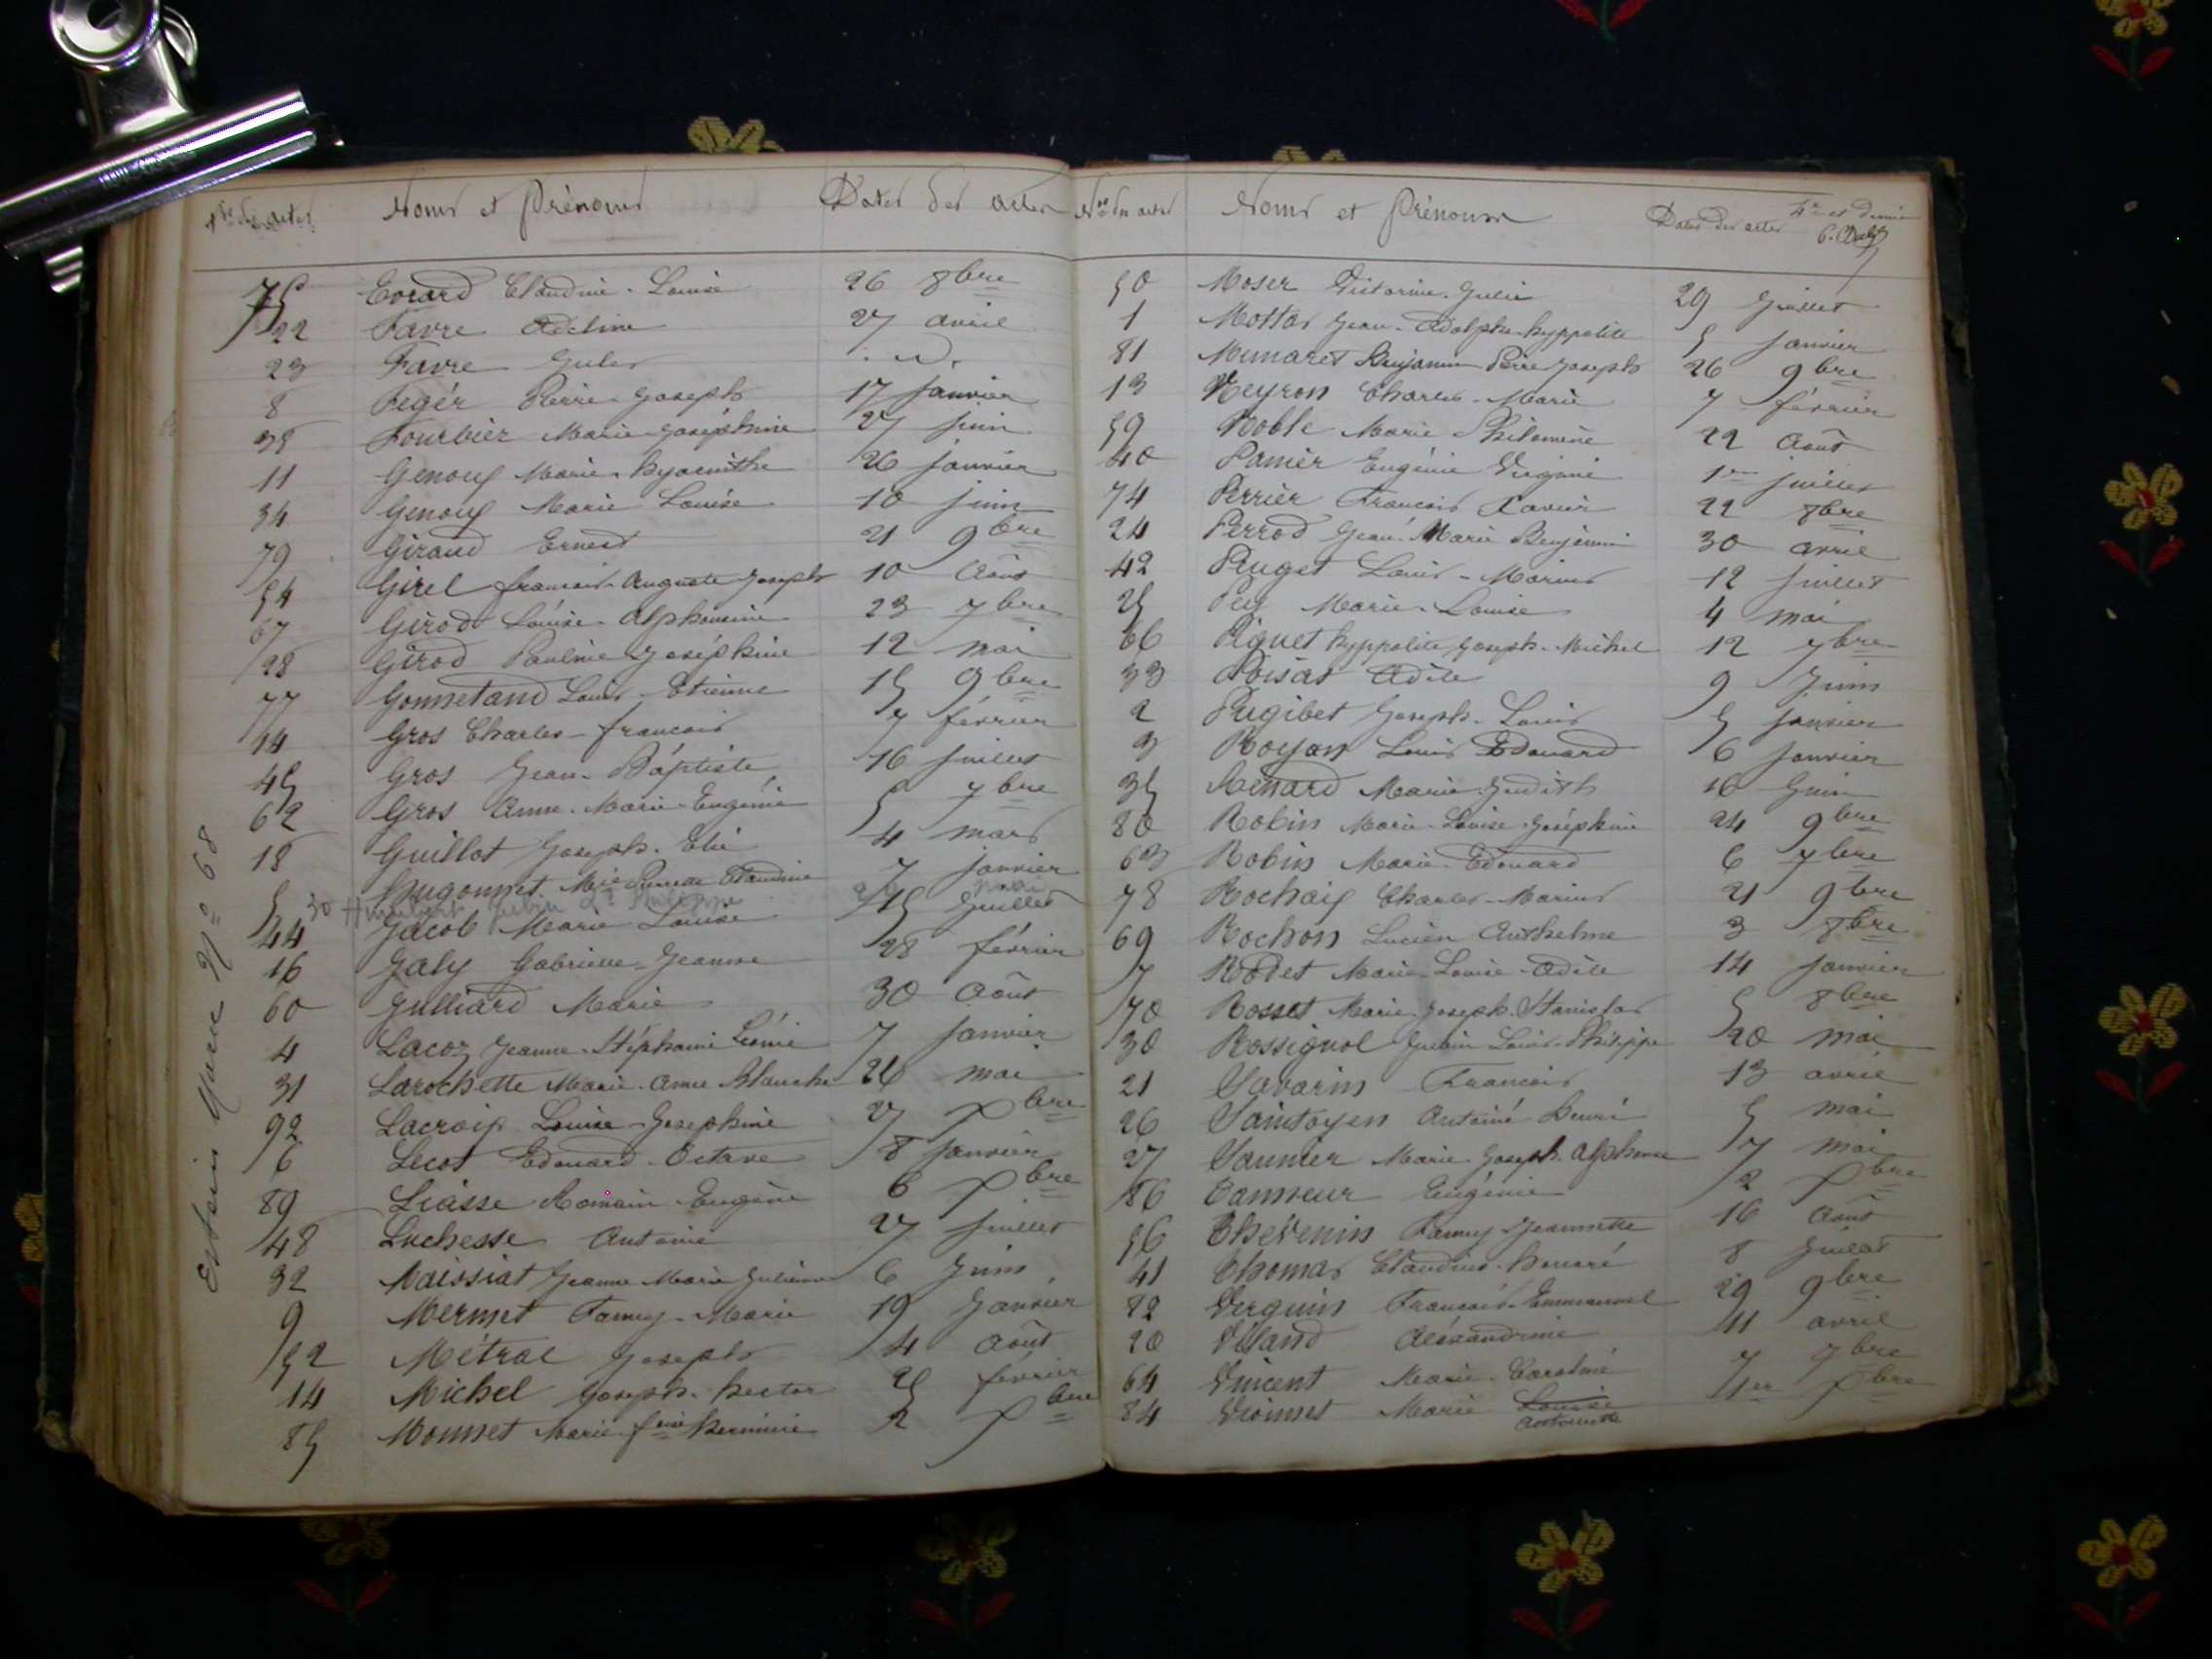 Nos des actes Noms et Prénoms Dates des actes
75 Evrard Claudine-Louise 26 8bre
22 Favre Adeline 27 avril
23 Favre Jules . d.
8 Fegér Pierre-Joseph 17 janvier
38 Fourbier Marie-Joséphine 27 juin
11 Genoux Marie-hyacinthe 26 janvier
34 Genoux Marie Louise 10 juin
79 Giraud Ernest 21 9bre
54 Girel francois-Auguste Joseph 10 Août
67 Girod Louise-Alphonsine 23 7bre
28 Girod Pauline Joséphine 12 mai
77 Gonnetand Louis-Etienne 15 9bre
Gros Charles-francois 7 février
45 Gros Jean-Baptiste 16 juillet
62 Gros Anne-Marie-Eugénie 5 7bre
18 Guillot Joseph-Elie 4 mars
5 hugonnet Mie Pierrette Claudine 7 janvier
30 Humbert Julien Ls Philippe mai
44 Jacob Marie Louise 15 Juillet
16 Jaly Gabrielle-Jeanne 28 février
60 Julliard Marie 30 Août
4 Lacoz Jeanne-Stéphanie Léonie 7 Janvier
31 Larochette Marie-Anne Blanche 26 mai
92 Lacroix Louise-Joséphine 27 Xbre
6 Lecot Edouard-Octave 8 Janvier
89 Liasse Romain-Eugène 6 Xbre
48 Luchesse Antoine 27 juillet
32 Maissiat Jeanne Marie Julienne 6 Juin
9 Mermet Fanny-Marie 19 Janvier
52 Métral Joseph 4 Août
14 Michel Joseph-hector 25 février
85 Monnet Marie-fine herminie 2 Xbre
Nos des actes Noms et Prénoms Dates des actes
50 Moser Victorine-Julie 29 Juillet
1 Mottas Jean-Adolphe-hyppolite 5 janvier
81 Munaret Benjamin Pierre Joseph 26 9bre
13 Neyron Charles-Marie 7 février
59 Noble Marie Philomène 22 Août
40 Panier Eugénie Virginie 1er juillet
74 Perrier Francois Xavier 22 8bre
24 Perrod Jean-Marie Benjamin 30 avril
42 Puget Louis-Marius 12 juillet
25 Pey Marie-Louise 4 mai
66 Piguet hyppolite Joseph-Michel 12 7bre
33 Poisat Adèle 9 Juin
2 Pugibet Joseph-Louis 5 janvier
3 Royan Louis Edouard 6 janvier
35 Renard Marie-Judith 16 Juin
80 Robin Marie-Louise-Joséphine 24 9bre
63 Robin Marie-Edouard 6 7bre
78 Rochaix Charles-Marius 21 9bre
69 Rochon Lucien Anthelme 3 8bre
7 Rodet Marie-Louise-Adèle 14 janvier
70 Rosset Marie-Joseph-Stanislas 5 8bre
30 Rossignol Julien Louis-Philippe 20 mai
21 Savarin Francois 13 avril
26 Saintoyen Antoine henri 5 mai
27 Saunier Marie-Joseph-Alphonse 7 mai
86 Tanneur Eugénie 2 Xbre
56 Thevenin Fanny Jeannette 16 Août
41 Thomas Claudius-honoré 8 Juillet
82 Verguin Francois-Emmanuel 29 9bre
20 Viland Alexandrine 11 avril
64 Vincent Marie-Caroline 7 7bre
84 Vionnet Marie Louise 1er Xbre
Antoinette